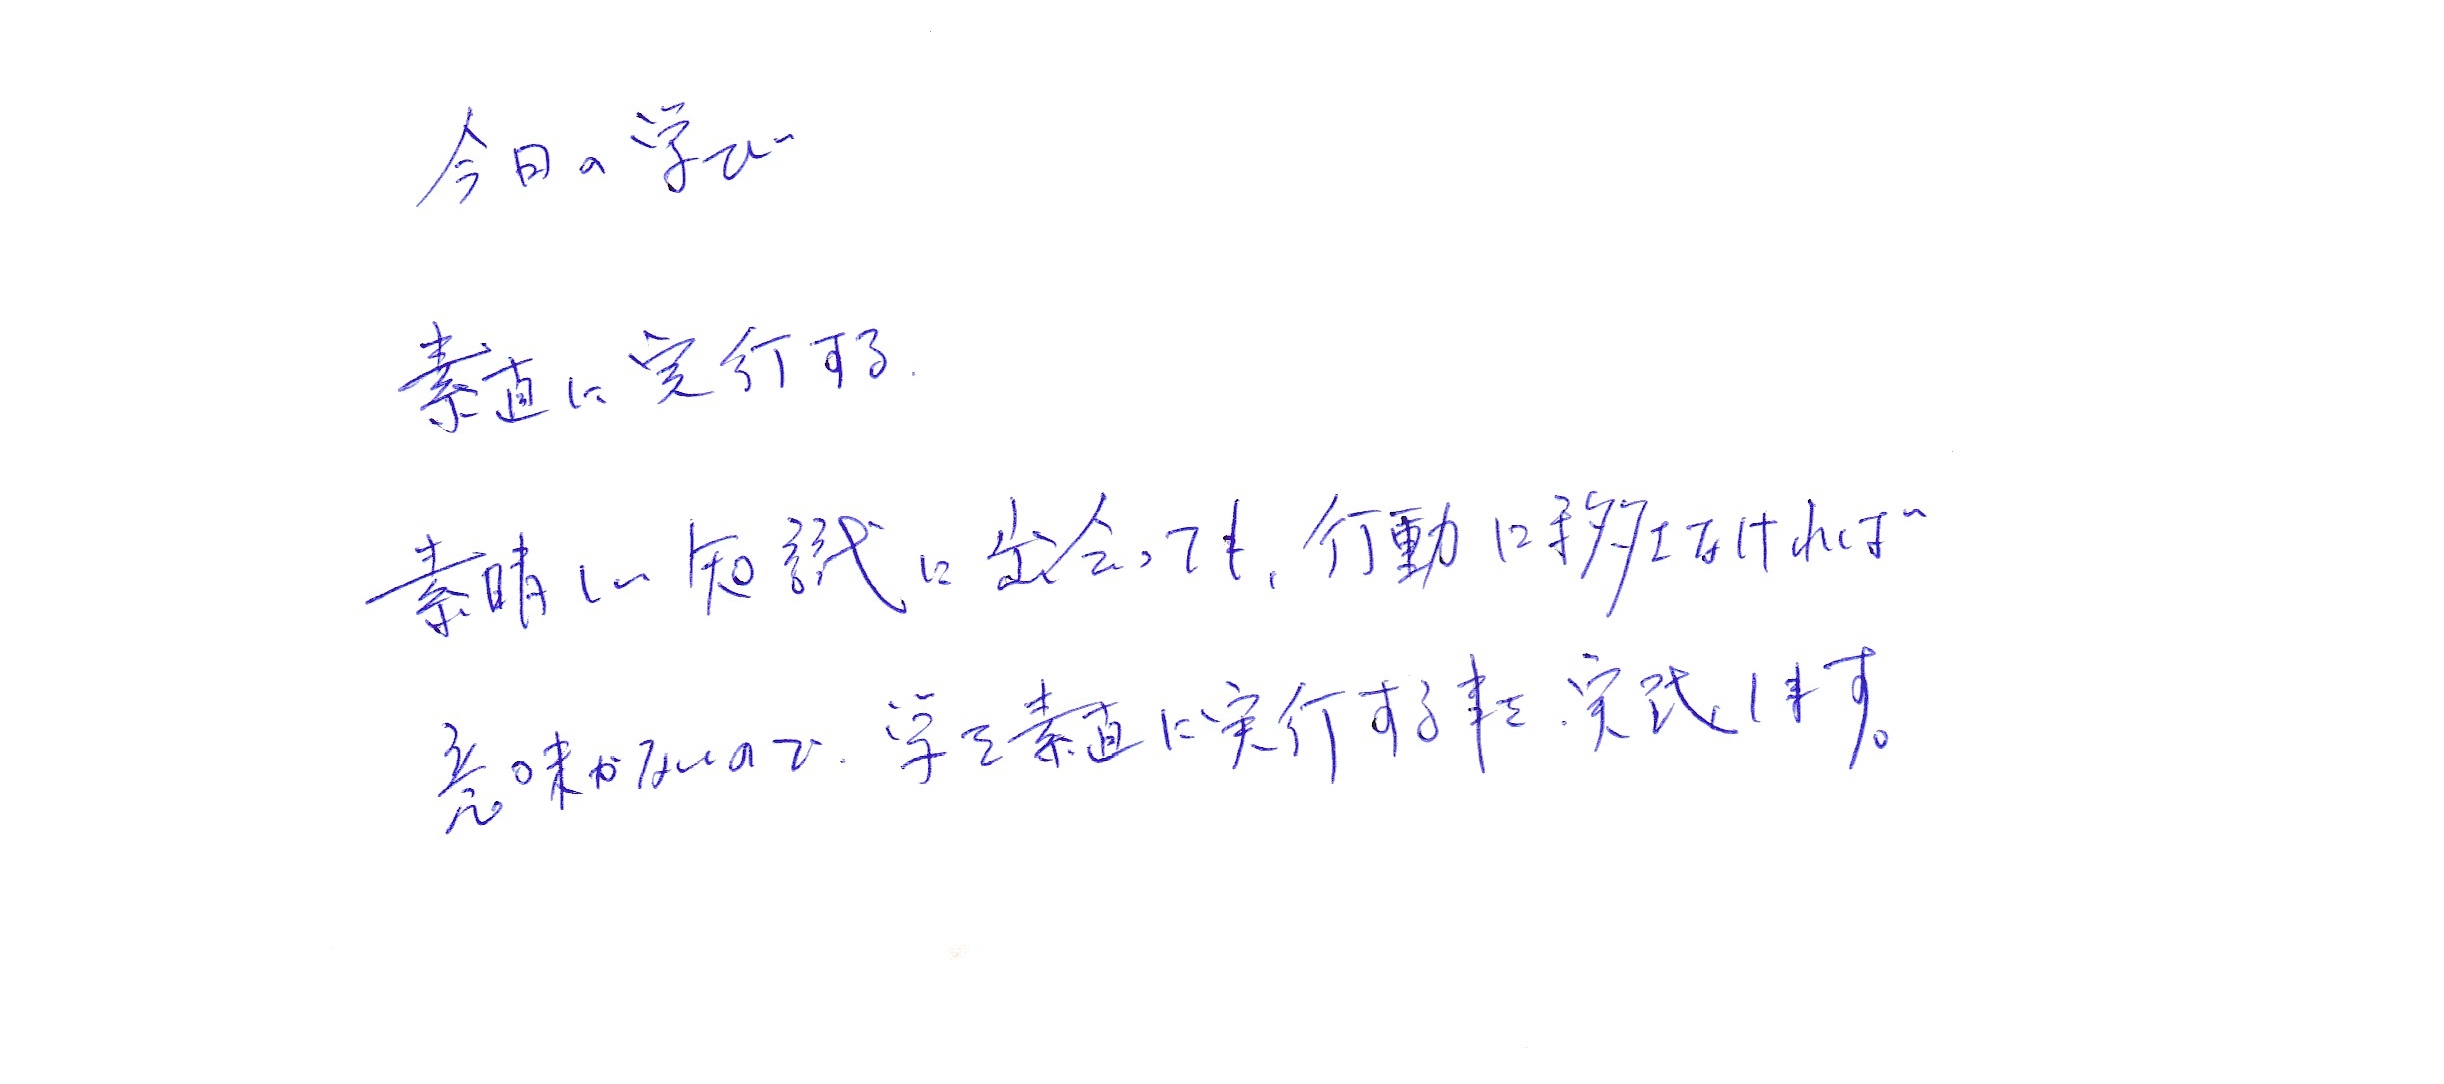 今日の学び
素直に実行する.
素晴しい知識に出会っても、行動に移さなければ
意味がないので、学を素直に実行する事を、実践します。